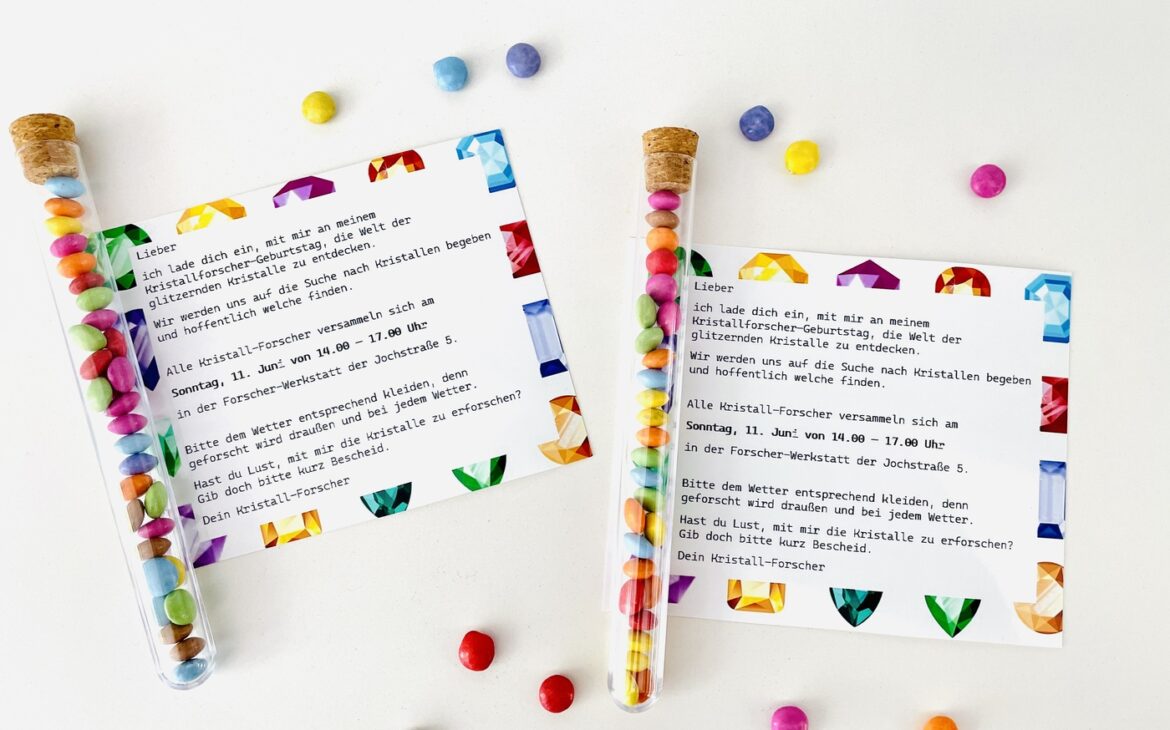 Lieber
ich lade dich ein, mit mir an meinem
Kristallforscher-Geburtstag, die Welt der
glitzernden Kristalle zu entdecken.
Wir werden uns auf die Suche nach Kristallen begeben
und hoffentlich welche finden.
Alle Kristall-Forscher versammeln sich am
Sonntag, 11. Juni von 14.00 – 17.00 Uhr
in der Forscher-Werkstatt der Jochstraße 5.
Bitte dem Wetter entsprechend kleiden, denn
geforscht wird draußen und bei jedem Wetter.
Hast du Lust, mit mir die Kristalle zu erforschen?
Gib doch bitte kurz Bescheid.
Dein Kristall-Forscher
Lieber
ich lade dich ein, mit mir an meinem
Kristallforscher-Geburtstag, die Welt der
glitzernden Kristalle zu entdecken.
Wir werden uns auf die Suche nach Kristallen begeben
und hoffentlich welche finden.
Alle Kristall-Forscher versammeln sich am
Sonntag, 11. Juni von 14.00 – 17.00 Uhr
in der Forscher-Werkstatt der Jochstraße 5.
Bitte dem Wetter entsprechend kleiden, denn
geforscht wird draußen und bei jedem Wetter.
Hast du Lust, mit mir die Kristalle zu erforschen?
Gib doch bitte kurz Bescheid.
Dein Kristall-Forscher